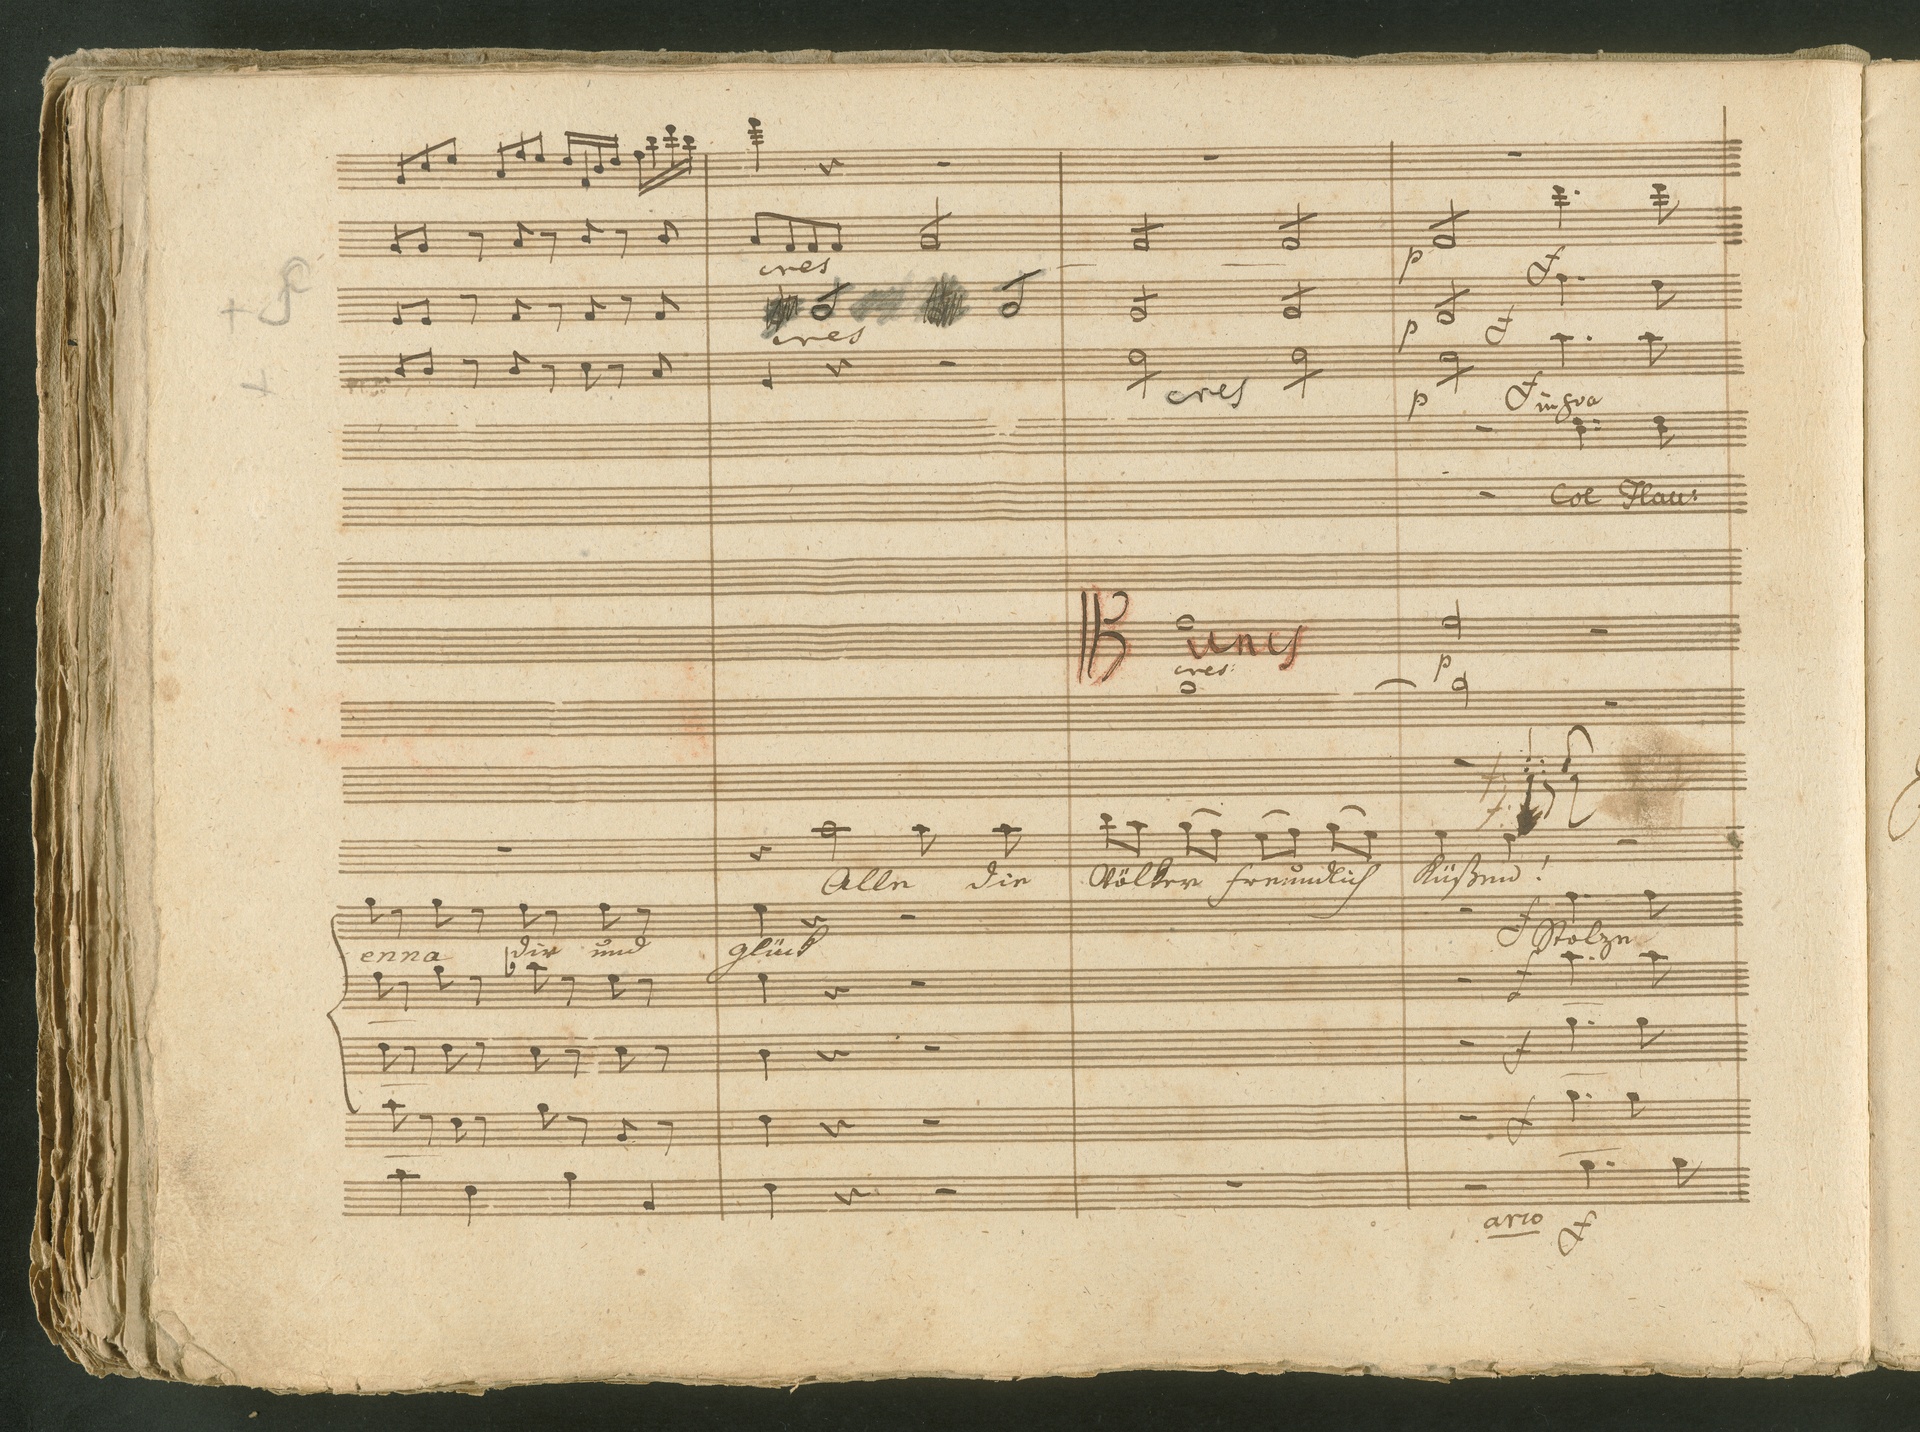 cres
p
f
cres
p
f
cres
p
f in 8va
Col Flau:
unis
cres:
p
f.
f.
Alle die Völker freundlich Küßen!
f Stolze
enna dir und glück
f
f
f
arco
f